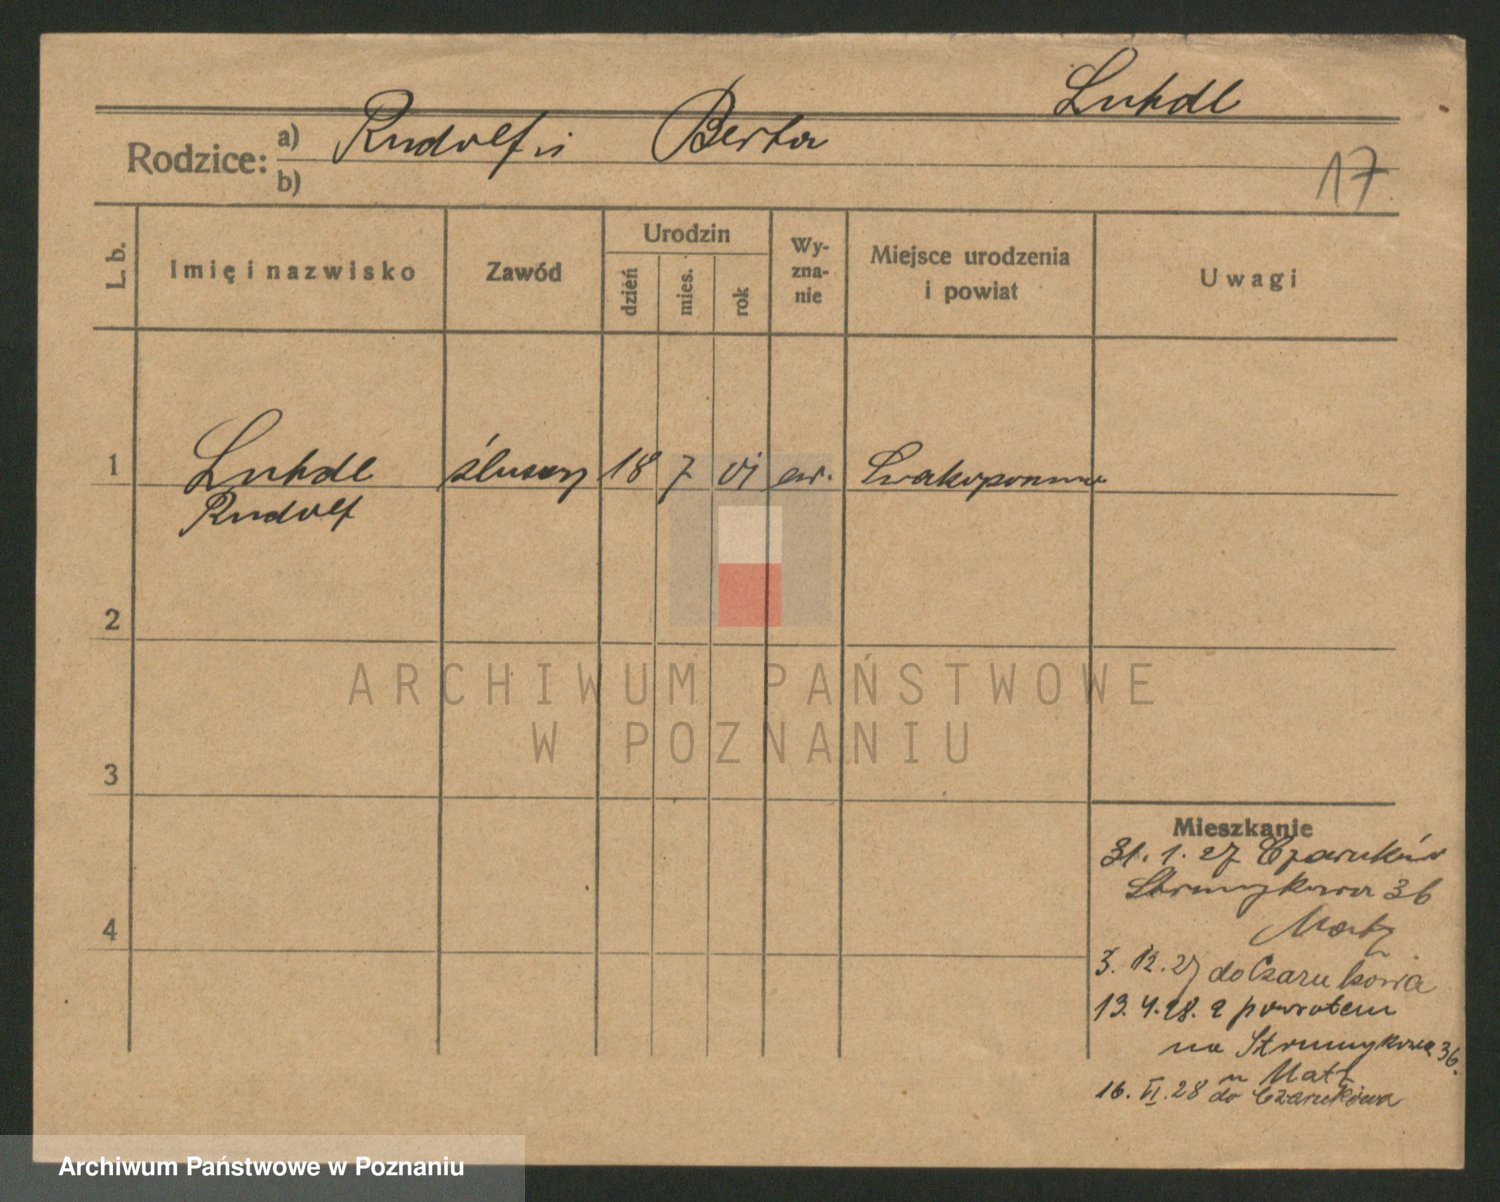 Lukdl
Rodzice: a) Rudolf i Berta
b)
17
L. b.
Imię i nazwisko
Zawód
Urodzin
dzień
mies.
rok
Wy-
zna-
nie
Miejsce urodzenia
i powiat
Uwagi
1
Lukdl
Rudolf
ślusarz
18
7
01
ew.
2
3
4
Mieszkanie
31. 1. 27 Czarnków
Strumykowa 36
Matz
3. 12. 27 do Czarnkowa
13. 4. 28. z powrotem
na Strumykowa 36.
u Matz
16. VI. 28 do Czarnkowa
ARCHIWUM PAŃSTWOWE
W POZNANIU
Archiwum Państwowe w Poznaniu